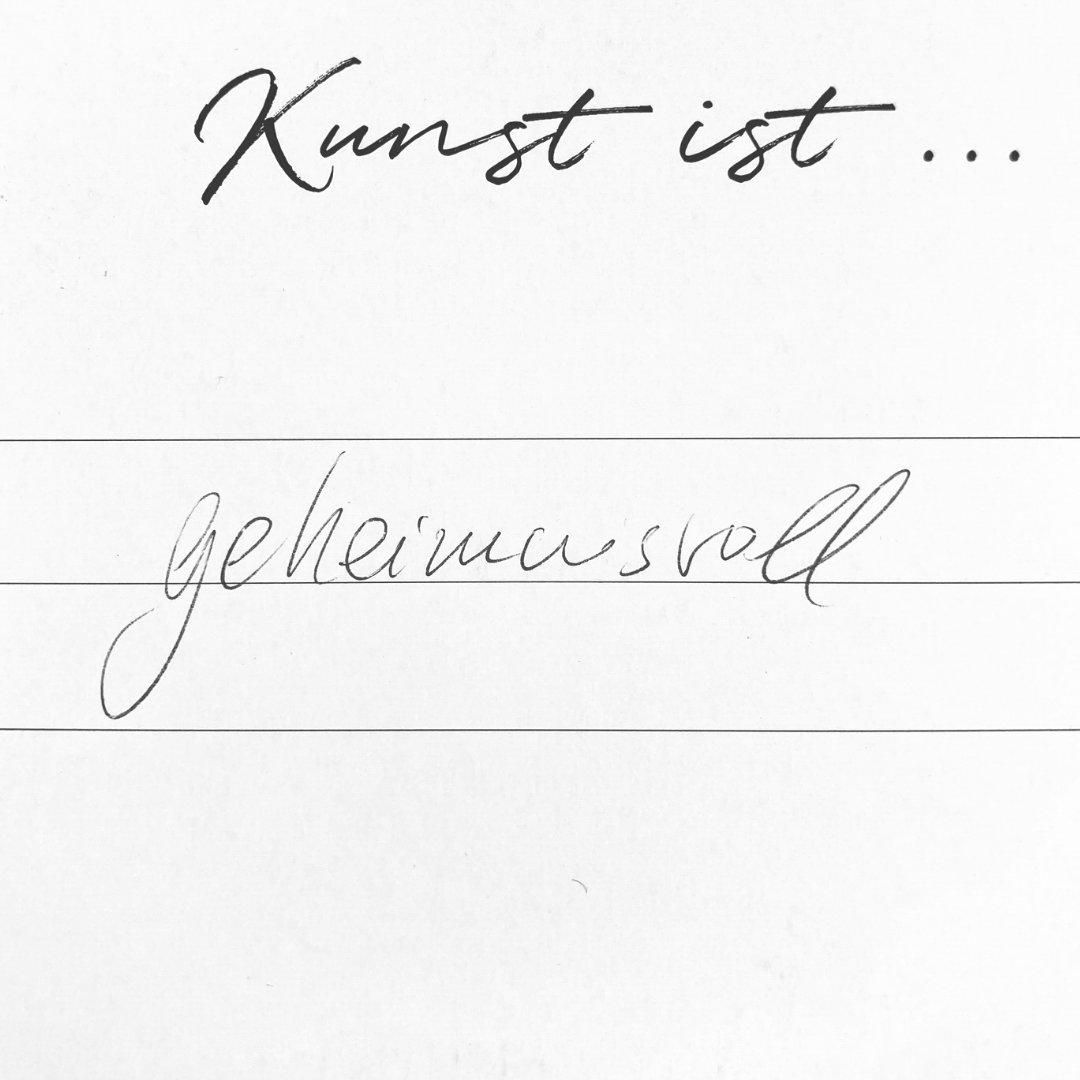 Kunst ist ...
geheimnisvoll